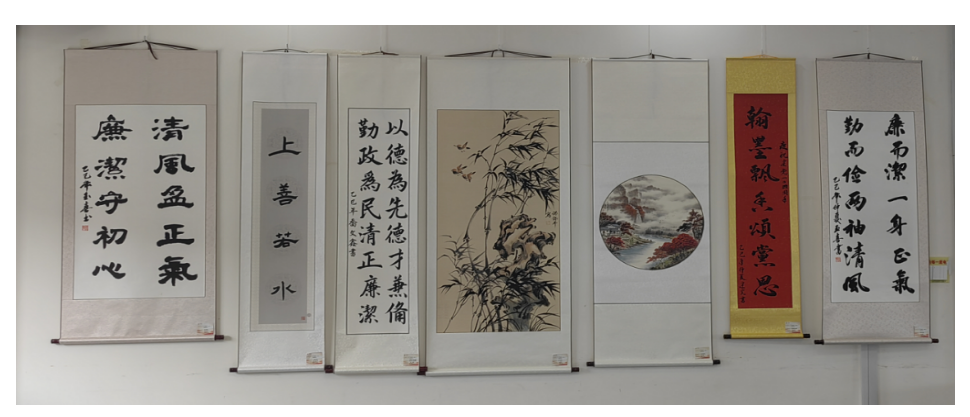 清風盈正氣
廉潔守初心
上善若水
以德為先德才兼備
勤政為民清正廉潔
翰墨飄香頌黨恩
廉而潔一身正氣
勤而儉兩袖清風